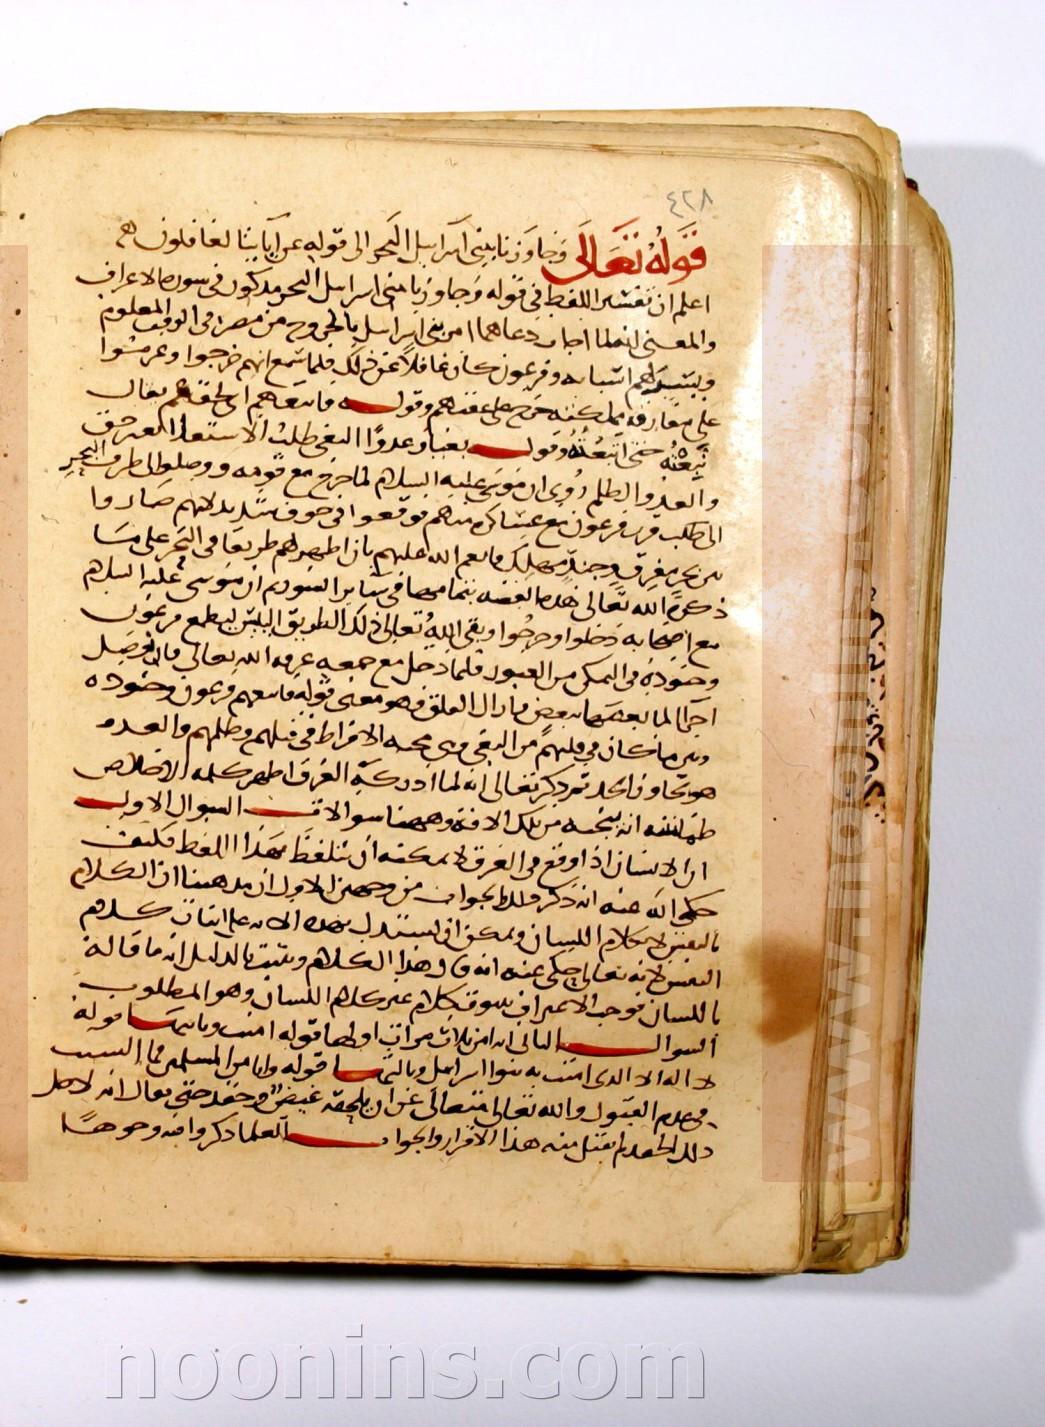 ٤٢٨
قوله تعالى وجاوزنا ببني اسرايل البحر الى قوله عن اياتنا لغافلون
اعلم ان تفسير اللفظ في قوله وجاوزنا ببني اسرايل البحر مذكور في سورة الاعراف
والمعنى انه لما اجاب دعاهما امر بني اسرايل بالخروج من مصر في الوقت المعلوم
ويسر لهم اسبابه وفرعون كان غافلا عن ذلك فلما سمع انهم خرجوا وعزموا
على مفارقة مملكته خرج على عقبهم وقوله فاتبعهم اي لحقهم يقال
تبعته حتى اتبعته وقوله بغيا وعدوا البغي طلب الاستعلا بغير حق
والعدو الظلم روي ان موسى عليه السلام لما خرج مع قومه ووصلوا الى طرف البحر
فرعون مع عساكره وقعوا في خوف شديد لانهم صاروا
بين بحر مغرق وجند مهلك فانعم الله عليهم بان اظهر لهم طريقا في البحر على ما
ذكر الله تعالى هذه القصة بتمامها في ساير السور ثم ان موسى عليه السلام
مع اصحابه دخلوا وخرجوا وبقى الله تعالى ذلك الطريق ليطمع فرعون
وجنوده في التمكن من العبور فلما دخل مع جمعه غرقه الله تعالى بان اوصل
اجزا الما بعضها ببعض وازال الفلق فهو معنى قوله فاتبعهم فرعون وجنوده
وبين ما كان في قلبهم من البغي وهي محبة الافراط في قتلهم وظلمهم والعدو
هو تجاوز الحد ثم ذكر تعالى انه لما ادركه الغرق اظهر كلمة الاخلاص
ظنا منه انه ينجيه من تلك الافة وههنا سوالات السوال الاول
ان الانسان اذا وقع في الغرق لا يمكنه ان يتلفظ بهذا اللفظ فكيف
حكى الله عنه انه ذكر ذلك الجواب من وجهين الاول ان مذهبنا ان الكلام
بالنفس لا كلام اللسان ويمكن ان يستدل بهذه الاية على اثبات كلام
النفس لانه تعالى حكى عنه انه قال هذا الكلام وثبت بالدليل انه ما قاله
باللسان فوجب الاعتراف بثبوت كلام غير كلام اللسان وهو المطلوب
السوال الثاني انه امن ثلاث مرات اولها قوله امنت وثانيها قوله
لا اله الا الذي امنت به بنوا اسرايل وثالثها قوله وانا من المسلمين فما السبب
في عدم القبول والله تعالى متعالي عن ان يلحقه غيض وحقد حتى يقال انه لاجل
ذلك الحقد لم يقبل منه هذا الاقرار والجواب العلما ذكروا فيه وجوها
www.noonins.com
noonins.com